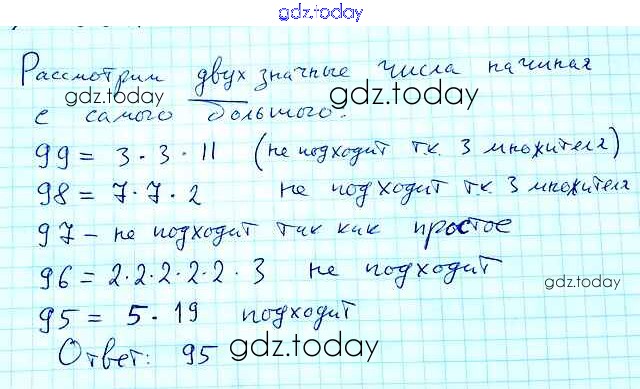 gdz.today
Рассмотрим двухзначные числа начиная
gdz.today gdz.today
с самого большого.
99 = 3 · 3 · 11 (не подходит т.к. 3 множителя)
98 = 7 · 7 · 2 не подходит т.к. 3 множителя
97 – не подходит так как простое
96 = 2·2·2·2·2·3 не подходит
gdz.today
95 = 5 · 19 подходит
Ответ: 95
gdz.today